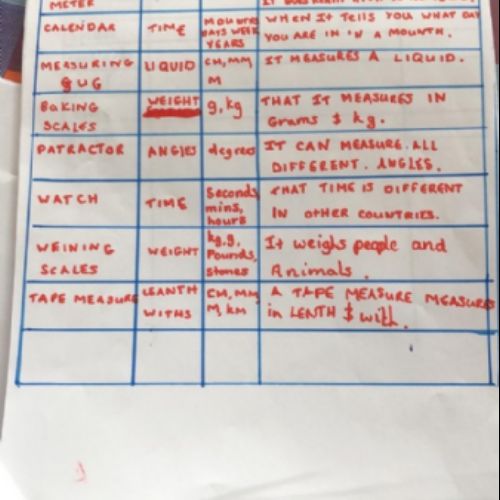 METER
CALENDAR
TIME
MOUNTHS
DAYS WEEK
YEARS
WHEN IT TELLS YOU WHAT DAY
YOU ARE IN IN A MOUNTH.
MEASURING
GUG
LIQUID
CM, MM
M
IT MEASURES A LIQUID.
BAKING
SCALES
WEIGHT
g, kg
THAT IT MEASURES IN
Grams $ kg.
PATRACTOR
ANGLES
degrees
IT CAN MEASURE ALL
DIFFERENT. ANGLES.
WATCH
TIME
Seconds
mins,
hours
THAT TIME IS DIFFERENT
IN OTHER COUNTRIES.
WEINING
SCALES
WEIGHT
kg, g,
Pounds,
stones
It weighs people and
Animals.
TAPE MEASURE
LEANTH
WITHS
CM, MM
M, KM
A TAPE MEASURE MEASURES
in LENTH $ with.